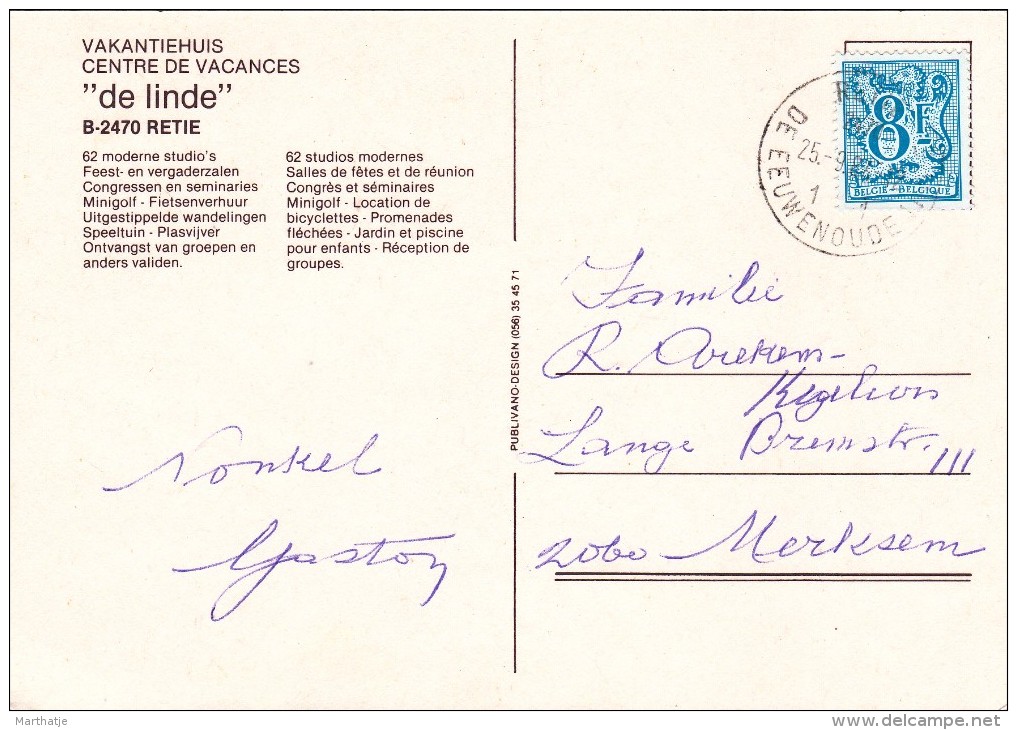 VAKANTIEHUIS
CENTRE DE VACANCES
"de linde"
B-2470 RETIE
62 moderne studio's
Feest- en vergaderzalen
Congressen en seminaries
Minigolf - Fietsenverhuur
Uitgestippelde wandelingen
Speeltuin - Plasvijver
Ontvangst van groepen en
anders validen.
62 studios modernes
Salles de fêtes et de réunion
Congrès et séminaires
Minigolf - Location de
bicyclettes - Promenades
fléchées - Jardin et piscine
pour enfants - Réception de
groupes.
PUBLIVANO-DESIGN (056) 35 45 71
8F
BELGIË-BELGIQUE
25.-9
DE EEUWENOUDE
Familie
R.
Lange Bremstr. 111
2060 Merksem
Nonkel
Gaston
Marthatje
delcampe.net